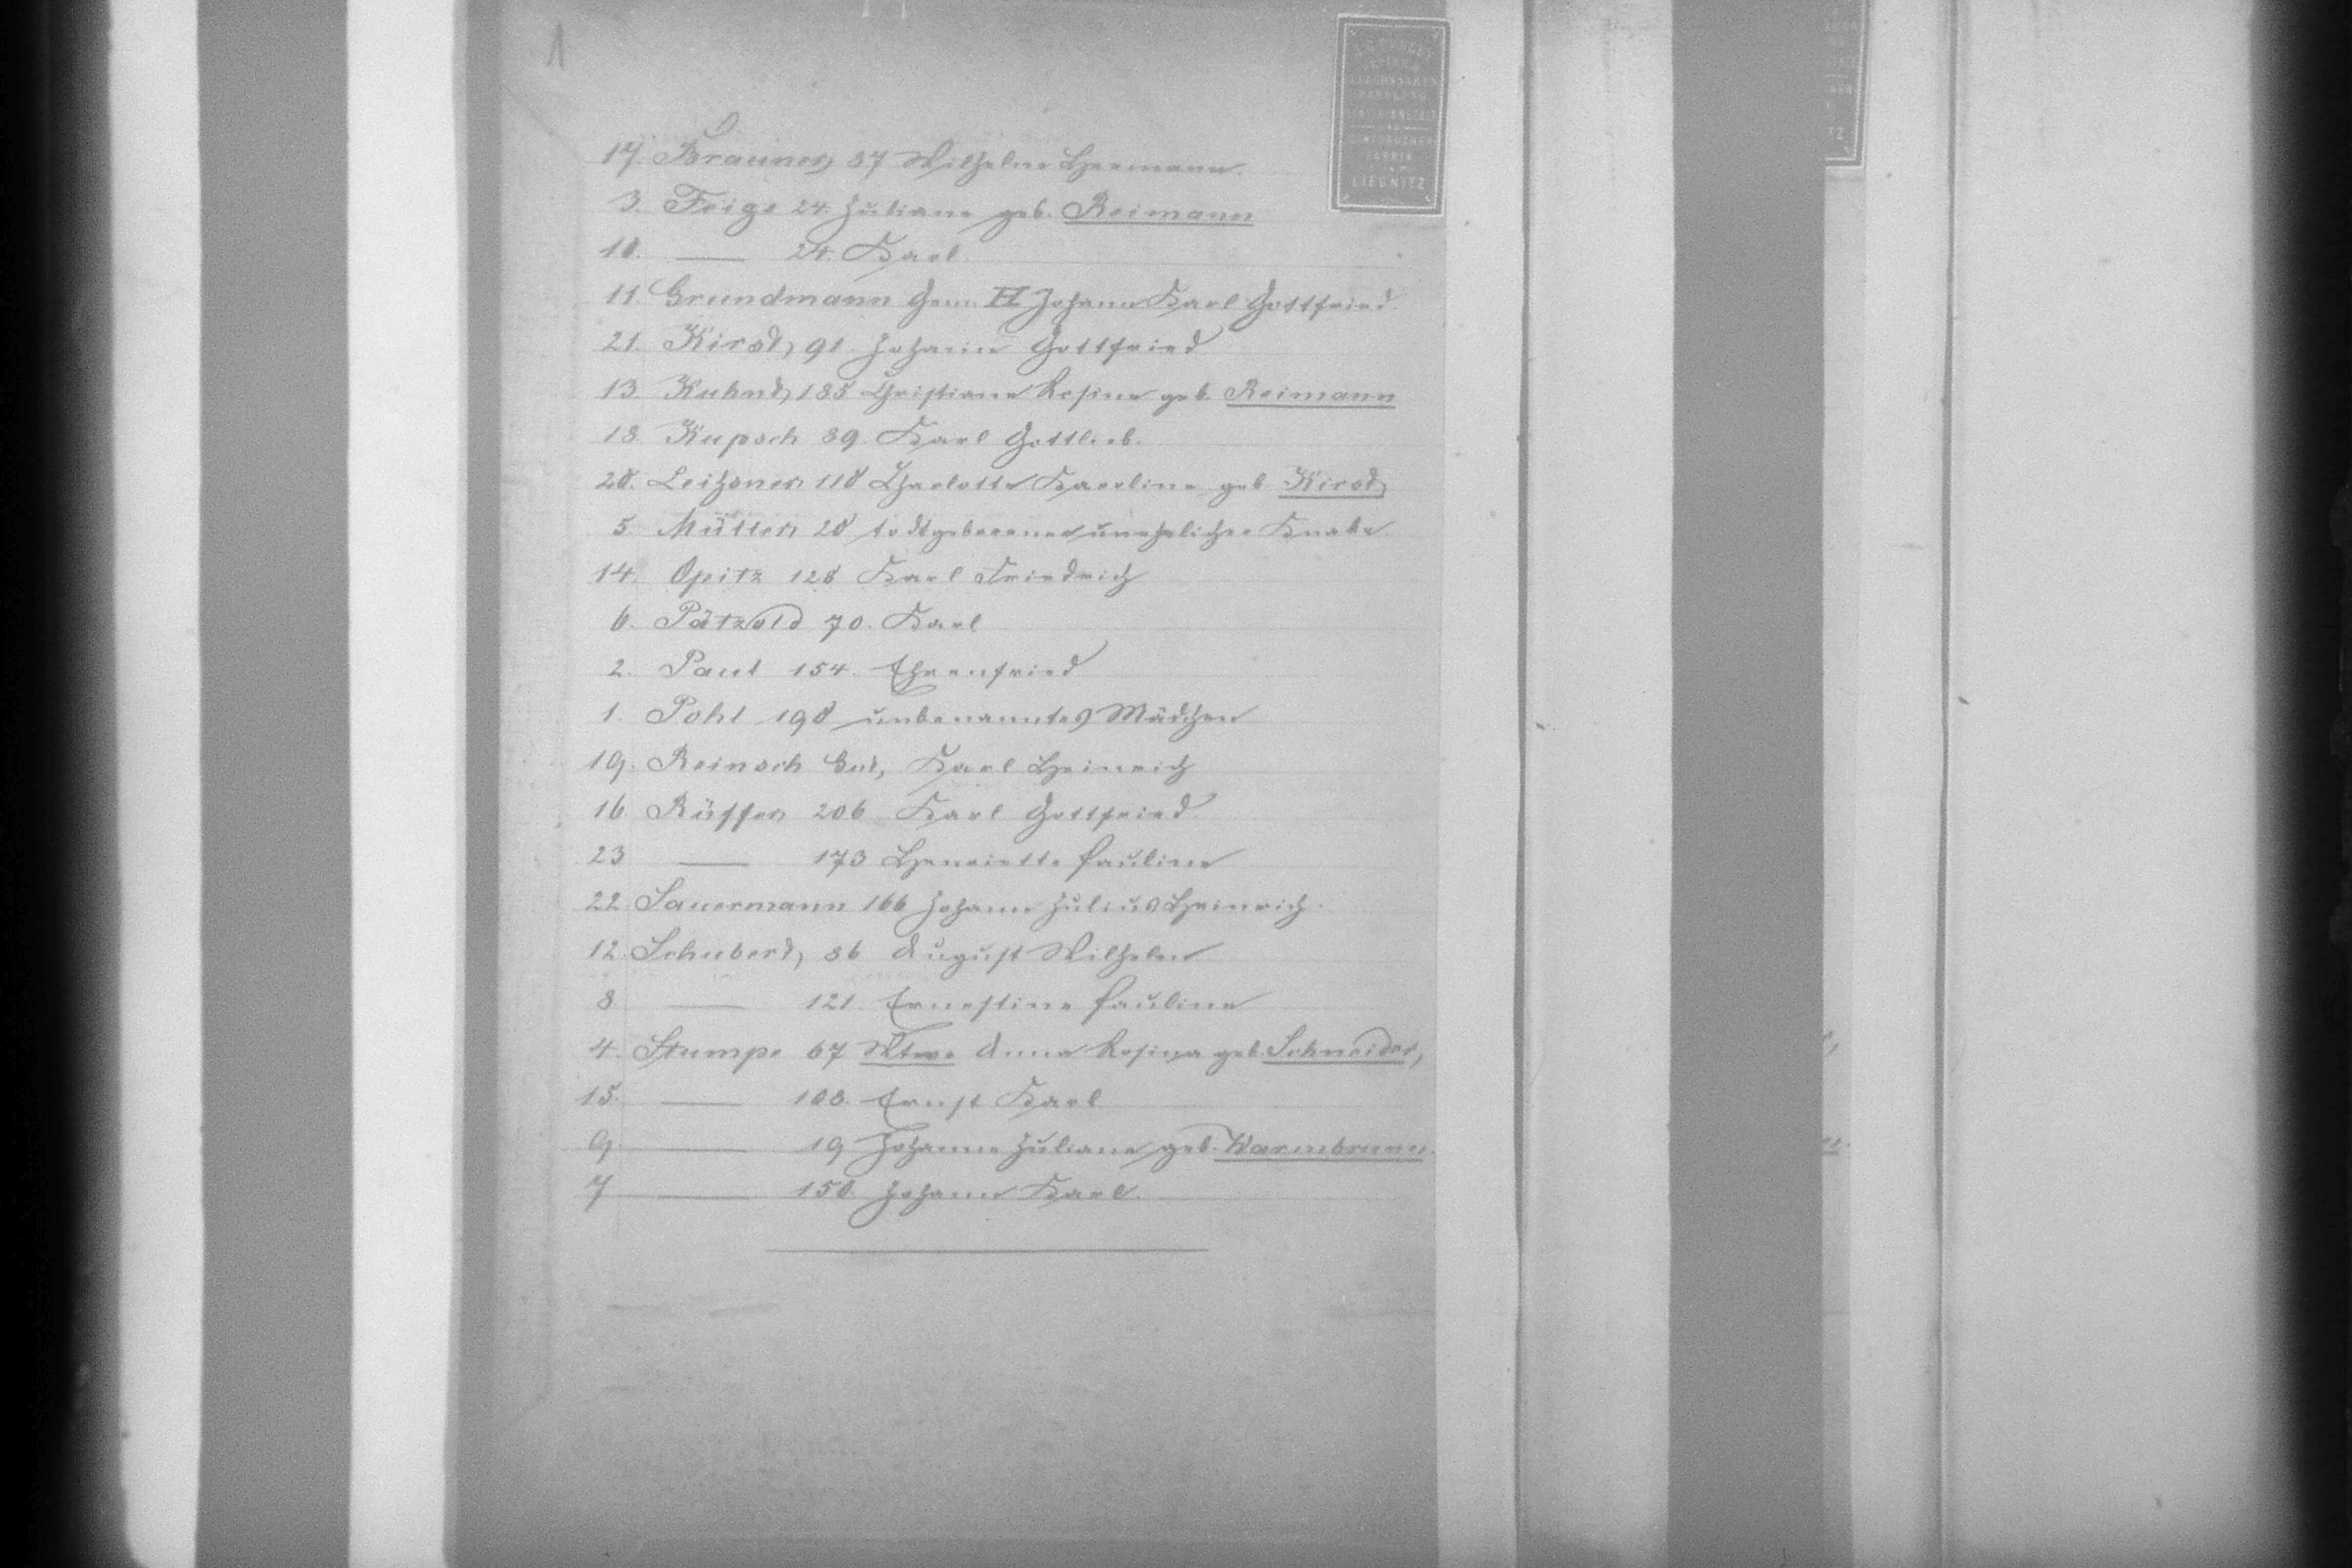 1
17. Brauner, 37 Wilhelm Hermann.
3. Feige 24. Juliane geb. Reimann
10. —— 24. Karl.
11. Grundmann Gem. II Johann Karl Gottfried.
21. Kirst, 91. Johann Gottfried
13. Kuhnt, 185 Christiane Rosine geb. Reimann
18. Kupsch 89. Karl Gottlieb.
20. Leihsner 110 Charlotte Karoline geb. Kirst,
5. Müller 20 todtgeborener unehelicher Knabe.
14. Opitz 128 Karl Friedrich
6. Pätzold 70. Karl
2. Paul 154. Ehrenfried
1. Pohl 198 unbenanntes Mädchen
19. Reinsch Gut, Karl Heinrich
16. Rüffer 206 Karl Gottfried.
23 —— 173 Henriette Pauline
22. Sauermann 166 Johann Julius Heinrich.
12. Schubert, 86 August Wilhelm
8. —— 121. Ernestine Pauline
4. Stumpe 67 Wtwe Anna Rosina geb. Schneider,
15. —— 108. Ernst Karl
9. —— 19 Johanne Juliane geb. Warmbrunn.
7 —— 150. Johann Karl.
HANDLUNG
FABRIK
LIEGNITZ